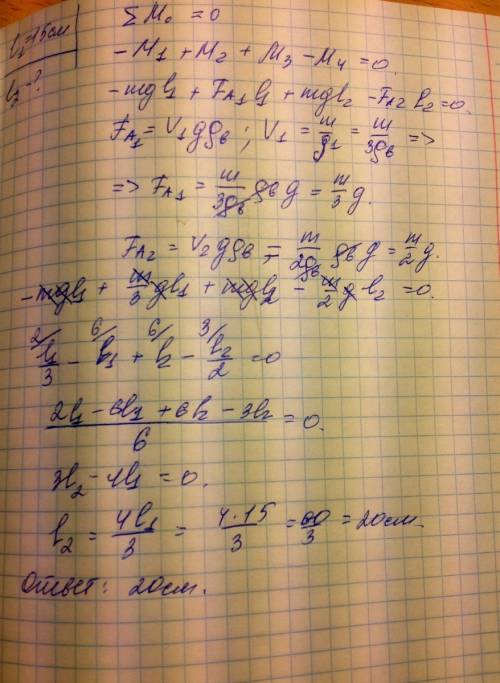 l₁=15см
l₂ - ?
ΣM₀ = 0
-M₁ + M₂ + M₃ - M₄ = 0.
-mgl₁ + F_A₁ l₁ + mgl₂ - F_A₂ l₂ = 0.
F_A₁ = V₁gρв ; V₁ = m/ρ₁ = m/3ρв =>
=> F_A₁ = m/3ρв ρв g = m/3 g.
F_A₂ = V₂gρв = m/2ρв ρв g = m/2 g.
-mgl₁ + m/3 gl₁ + mgl₂ - m/2 g l₂ = 0.
²⁄ l₁/3 - ⁶⁄ l₁ + ⁶⁄ l₂ - ³⁄ l₂/2 = 0
2l₁ - 6l₁ + 6l₂ - 3l₂ / 6 = 0.
3l₂ - 4l₁ = 0.
l₂ = 4l₁/3 = 4·15/3 = 60/3 = 20см.
Ответ: 20см.